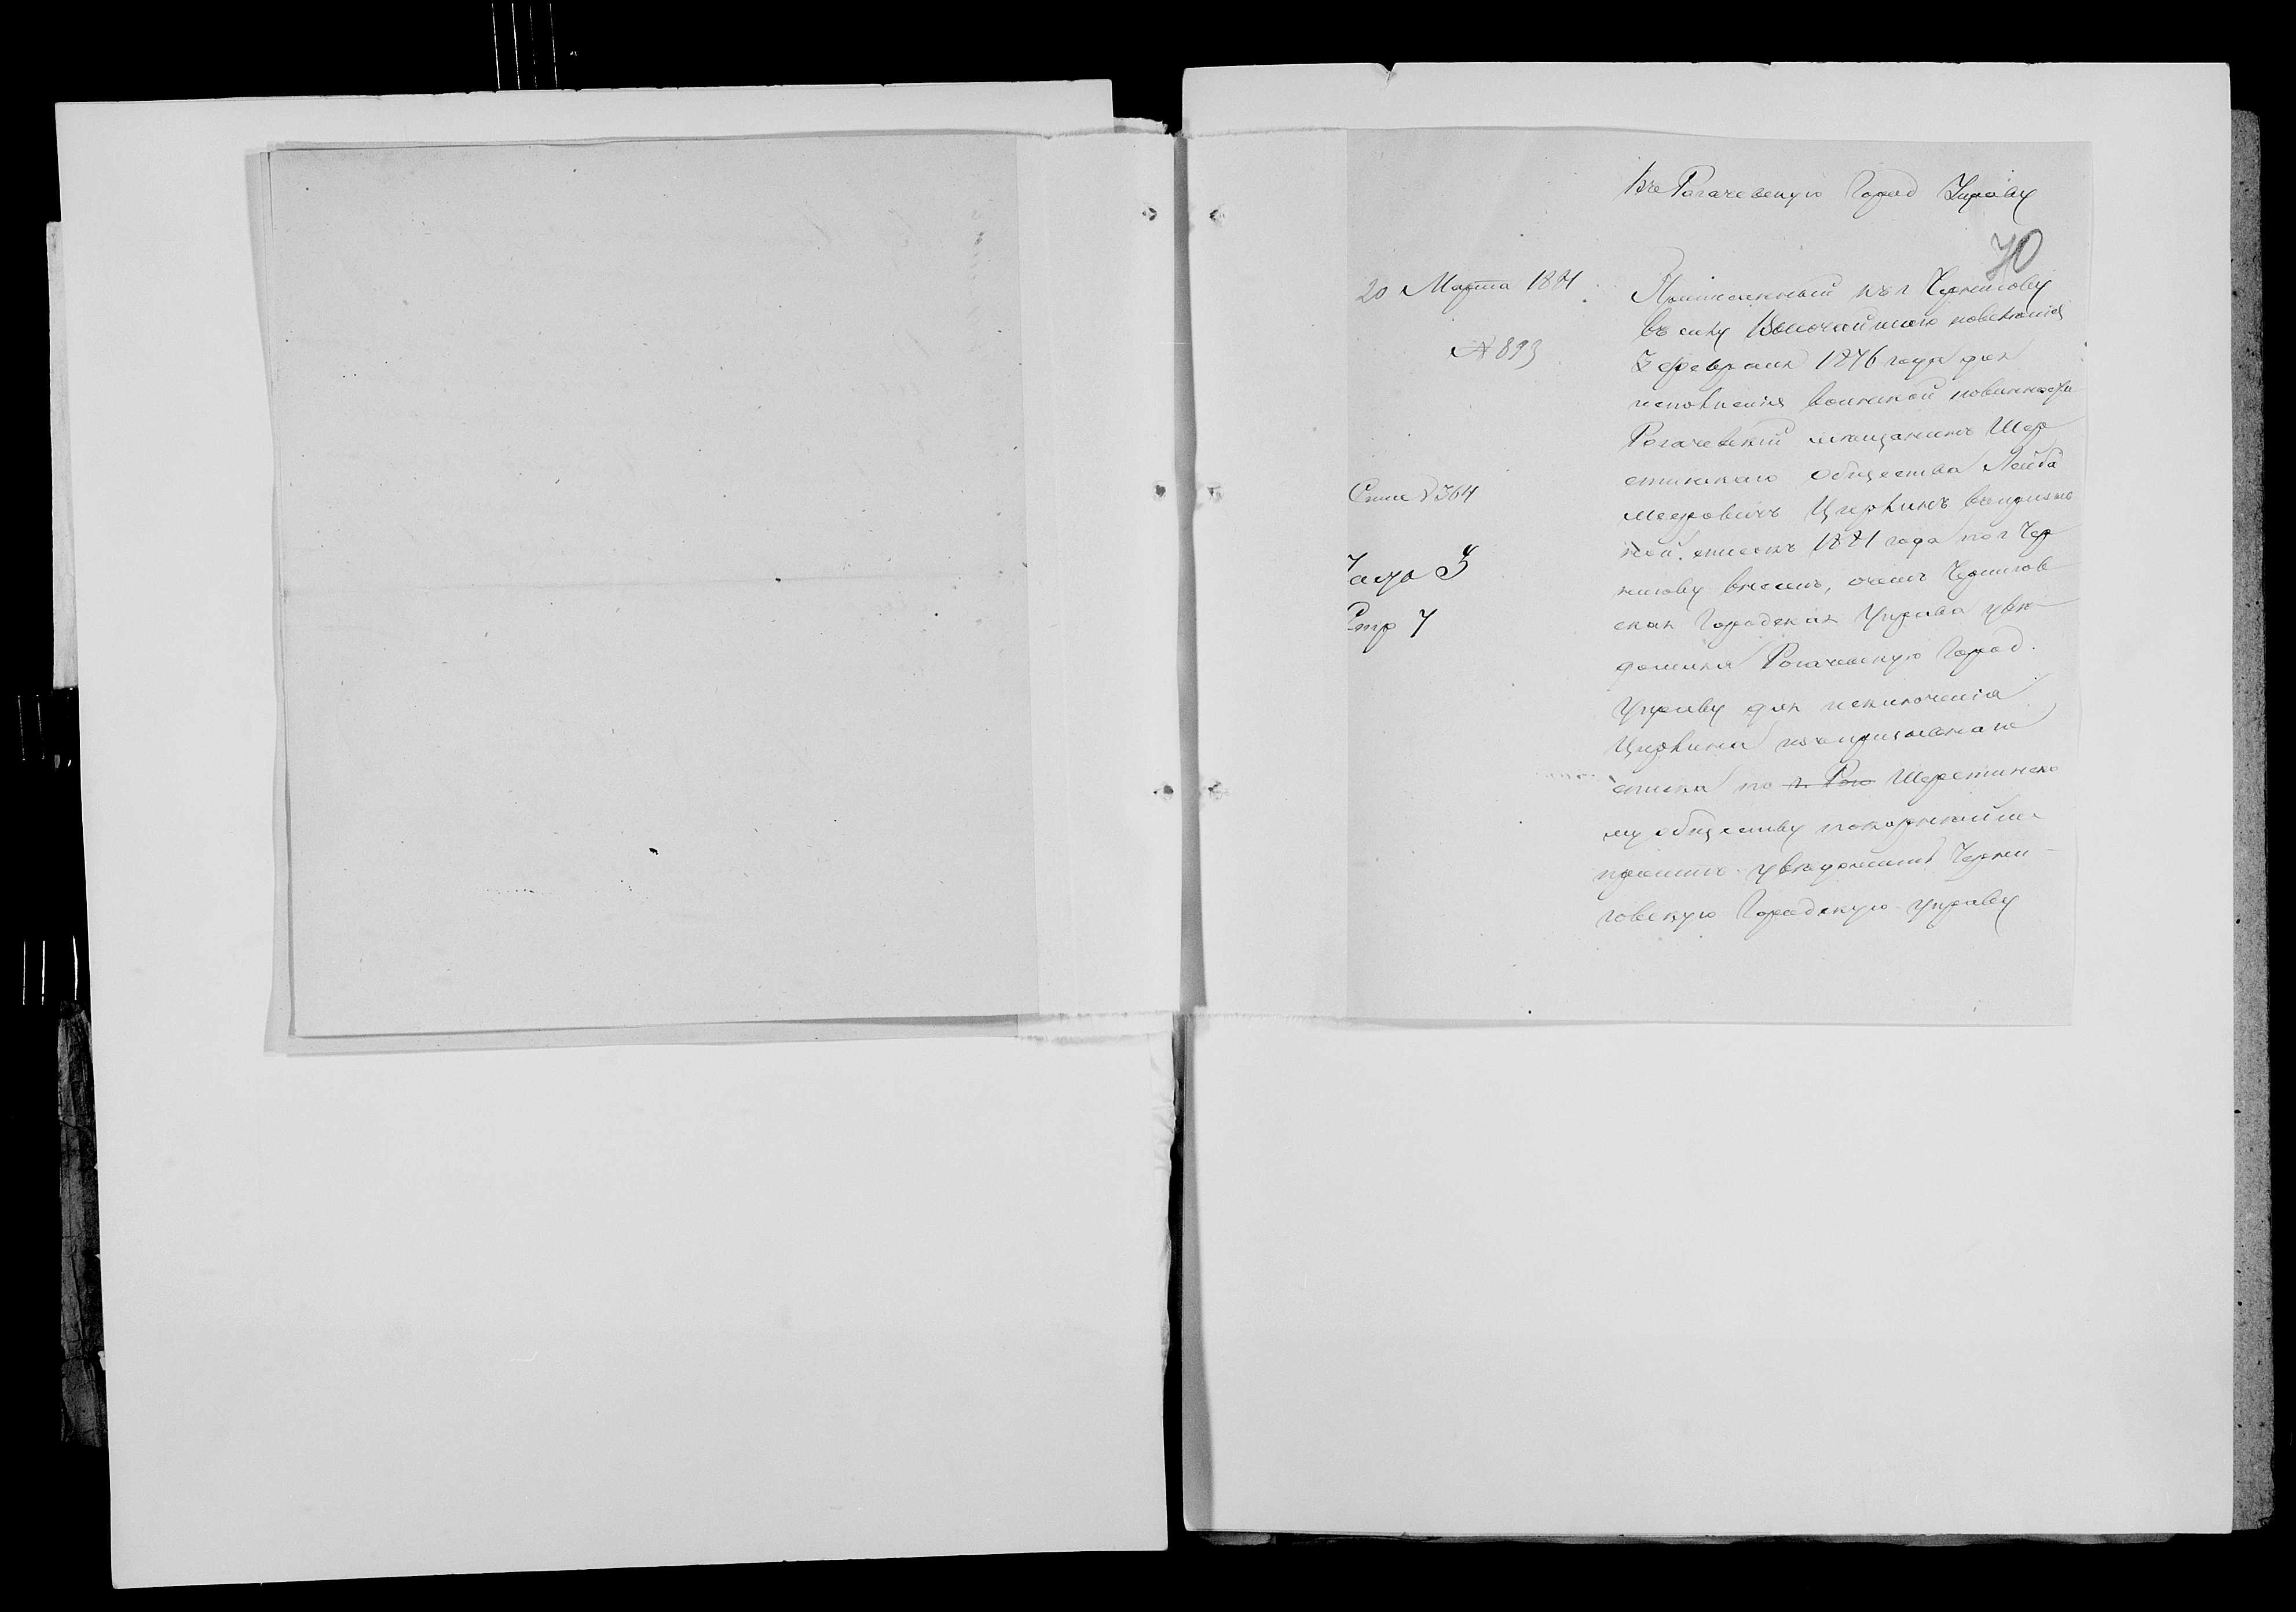 Въ Рогачевскую Город Управу
70
20 Марта 1881
№ 893
Спис № 364
Участ 3
Стр 7
Приписанный къ г Чернигову
въ силу Высочайшаго повеления
3 февраля 1876 года для
исполнения воинской повинности
Рогачевский мещанинъ Шер
стинскаго общества Лейба
Мееровичъ Циркинъ въ призыв
ной списокъ 1881 года по г Чер
нигову внесенъ, о чемъ Чернигов
ская Городская Управа уве
домляя Рогачевскую Город.
Управу для исключения
Циркина изъ призывнаго
списка по г. Рог Шерстинско
му обществу покорнейше
проситъ уведомить Черни-
говскую Городскую Управу